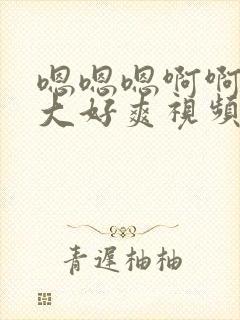 嗯嗯嗯啊啊
大好爽視頻
青遲柚柚